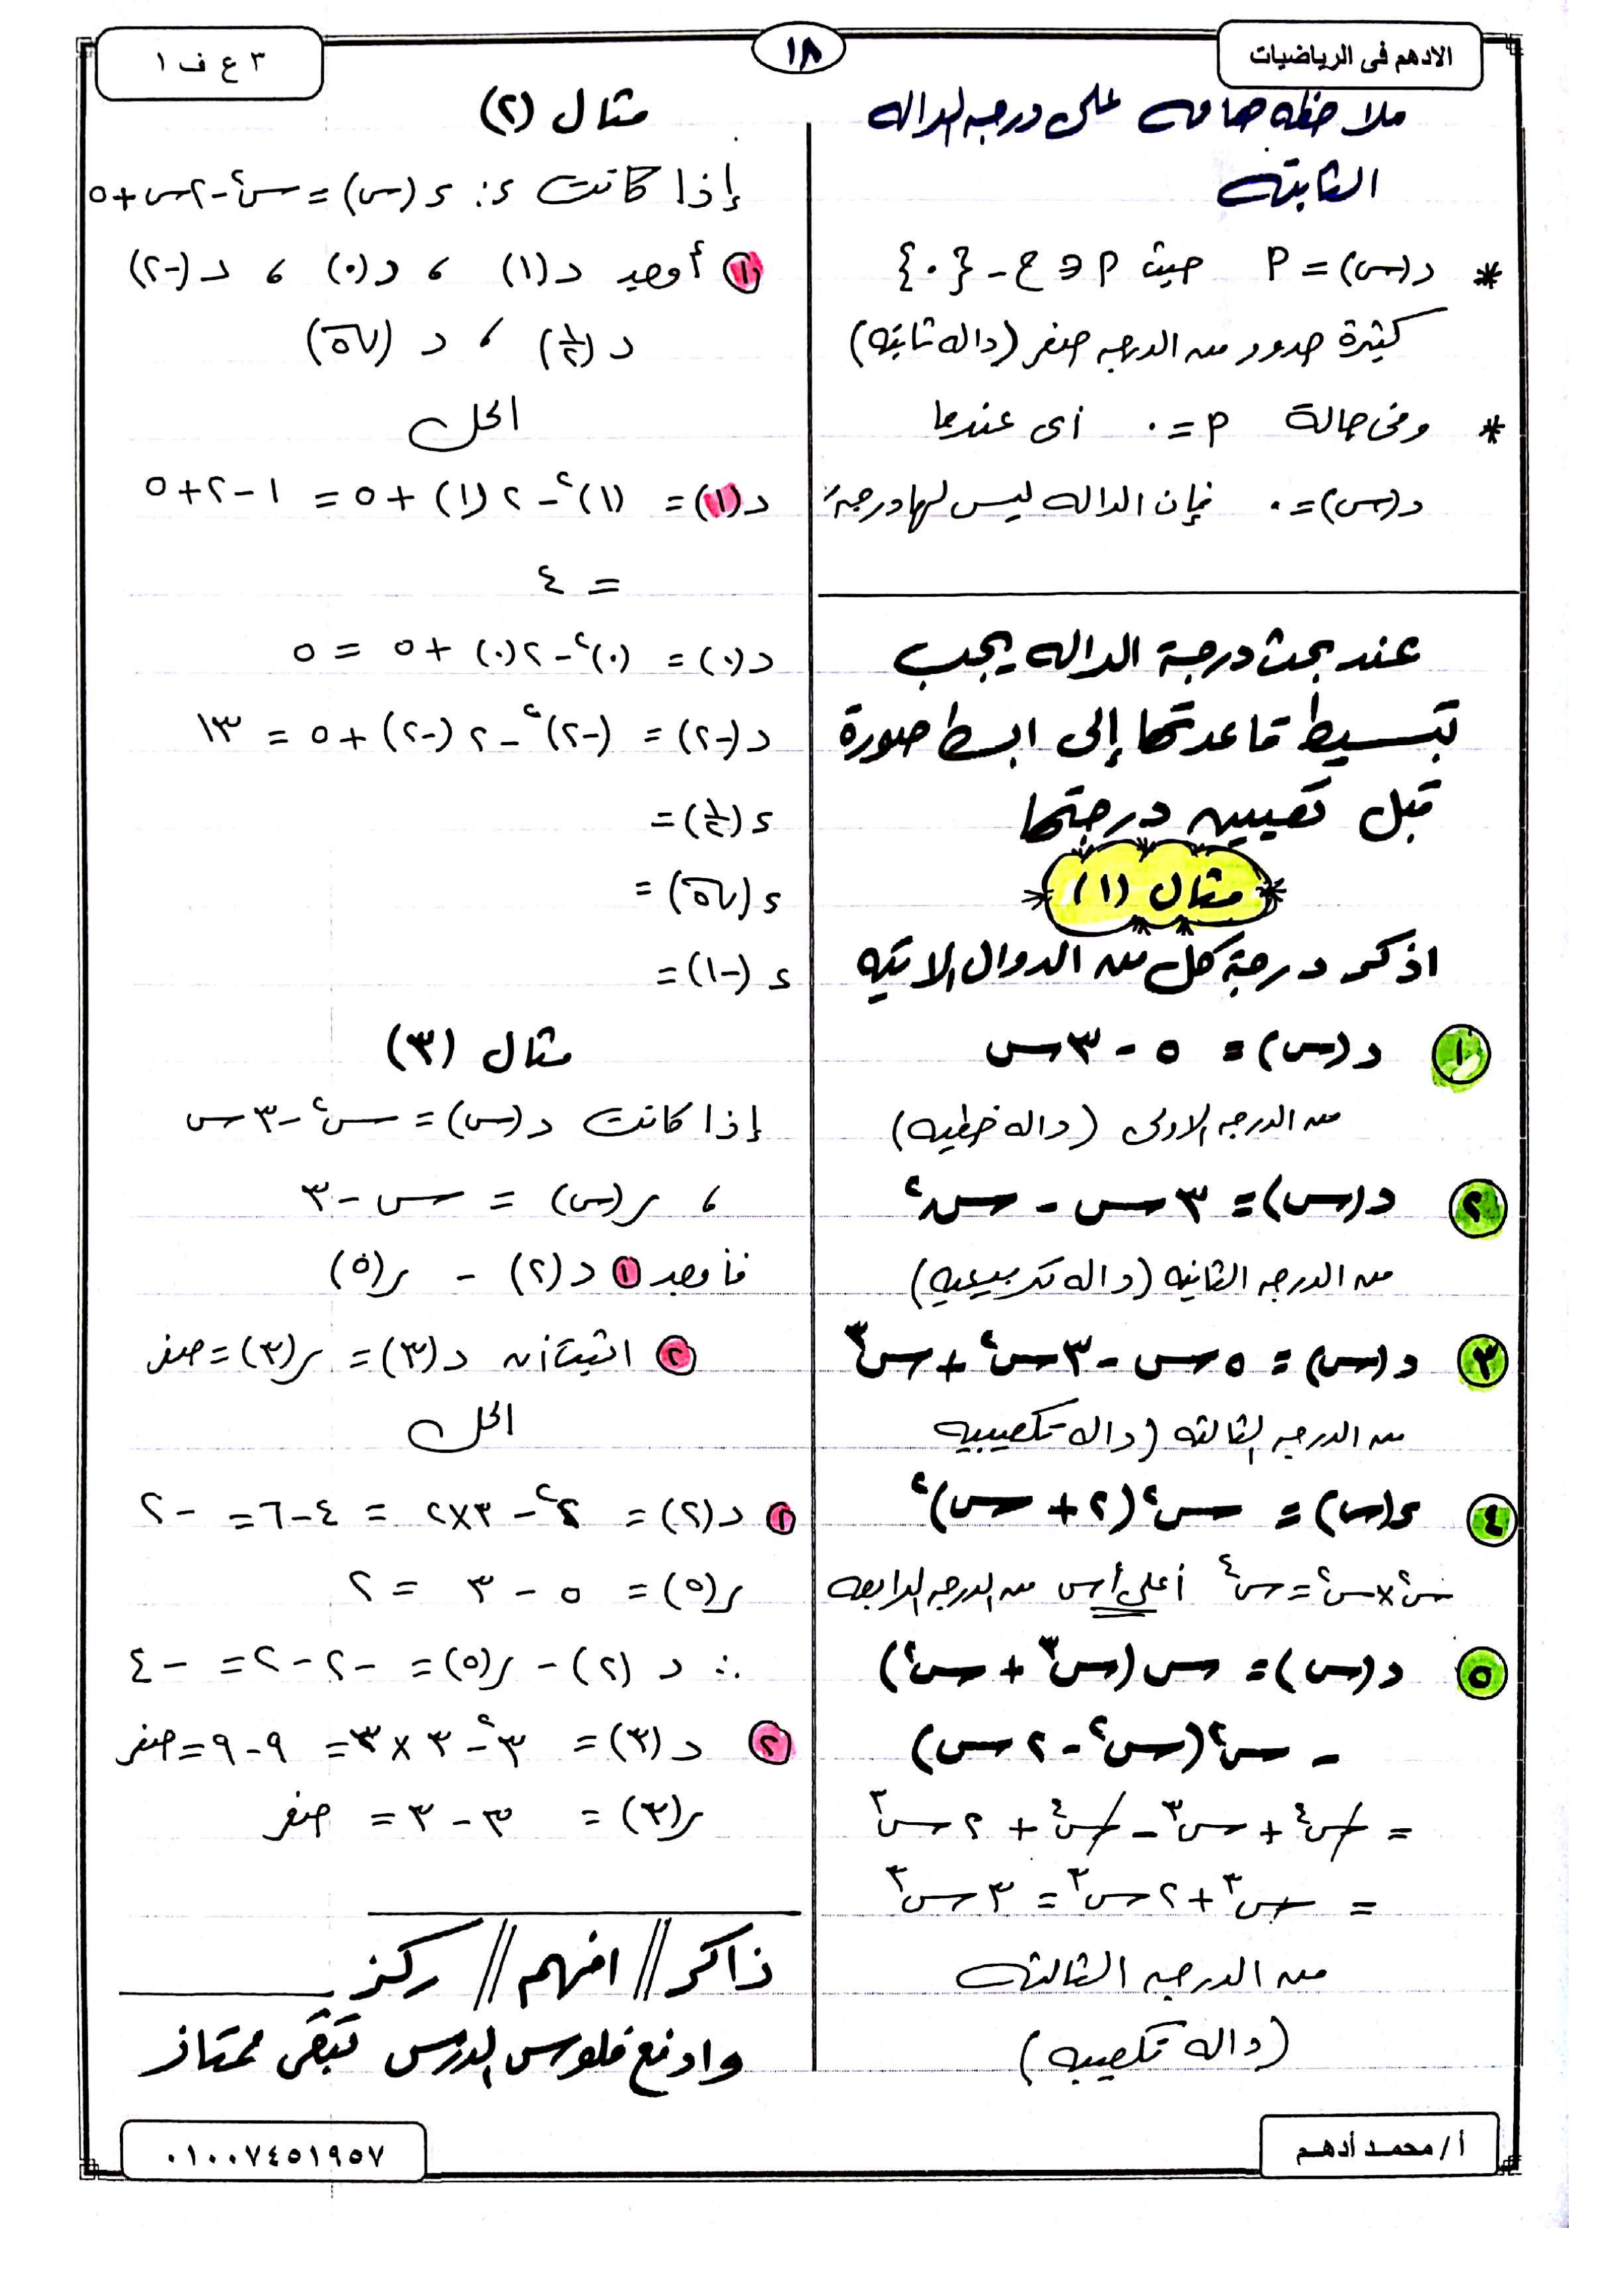 الادهم فى الرياضيات
١٨
٣ ع ف ١
ملاحظه هامه على درجه الداله
الثابته
* د(س) = م حيث م ∈ ح - {٠}
كثيرة حدود من الدرجه صفر (داله ثابته)
* وفى حالة م = ٠ أى عندما
د(س) = ٠ فإن الداله ليس لها درجه
عند بحث درجة الداله يجب
تبسيط قاعدتها إلى ابسط صورة
قبل تعيين درجتها
مثال (١)
اذكر درجة كل من الدوال الاتيه
١ د(س) = ٥ - ٣س
من الدرجه الاولى (داله خطيه)
٢ د(س) = ٣س - س٢
من الدرجه الثانيه (داله تربيعيه)
٣ د(س) = ٥س - ٣س٢ + س٣
من الدرجه الثالثه (داله تكعيبيه
٤ د(س) = س٢(٢ + س)٢
س٢ × س٢ = س٤ أعلى أس من الدرجه الرابعه
٥ د(س) = س(س٣ + س٢)
- س٢(س٢ - ٢س)
= س٤ + س٣ - س٤ + ٢س٣
= س٣ + ٢س٣ = ٣س٣
من الدرجه الثالثه
(داله تكعيبيه)
مثال (٢)
إذا كانت د: د(س) = س٢ - ٢س + ٥
١ أوجد د(١) ، د(٠) ، د(-٢)
د(١/٢) ، د(√٥)
الحل
د(١) = (١)٢ - ٢(١) + ٥ = ١ - ٢ + ٥
= ٤
د(٠) = (٠)٢ - ٢(٠) + ٥ = ٥
د(-٢) = (-٢)٢ - ٢(-٢) + ٥ = ١٣
د(١/٢) =
د(√٥) =
د(-١) =
مثال (٣)
إذا كانت د(س) = س٢ - ٣س
، ر(س) = س - ٣
فأوجد ١ د(٢) - ر(٥)
٢ اثبت أن د(٣) = ر(٣) = صفر
الحل
١ د(٢) = ٢٢ - ٣×٢ = ٤ - ٦ = -٢
ر(٥) = ٥ - ٣ = ٢
∴ د(٢) - ر(٥) = -٢ - ٢ = -٤
٢ د(٣) = ٣٢ - ٣ × ٣ = ٩ - ٩ = صفر
ر(٣) = ٣ - ٣ = صفر
ذاكر // افهم // ركز
وادفع فلوس الدرس تبقى ممتاز
أ/ محمد أدهم
٠١٠٠٧٤٥١٩٥٧